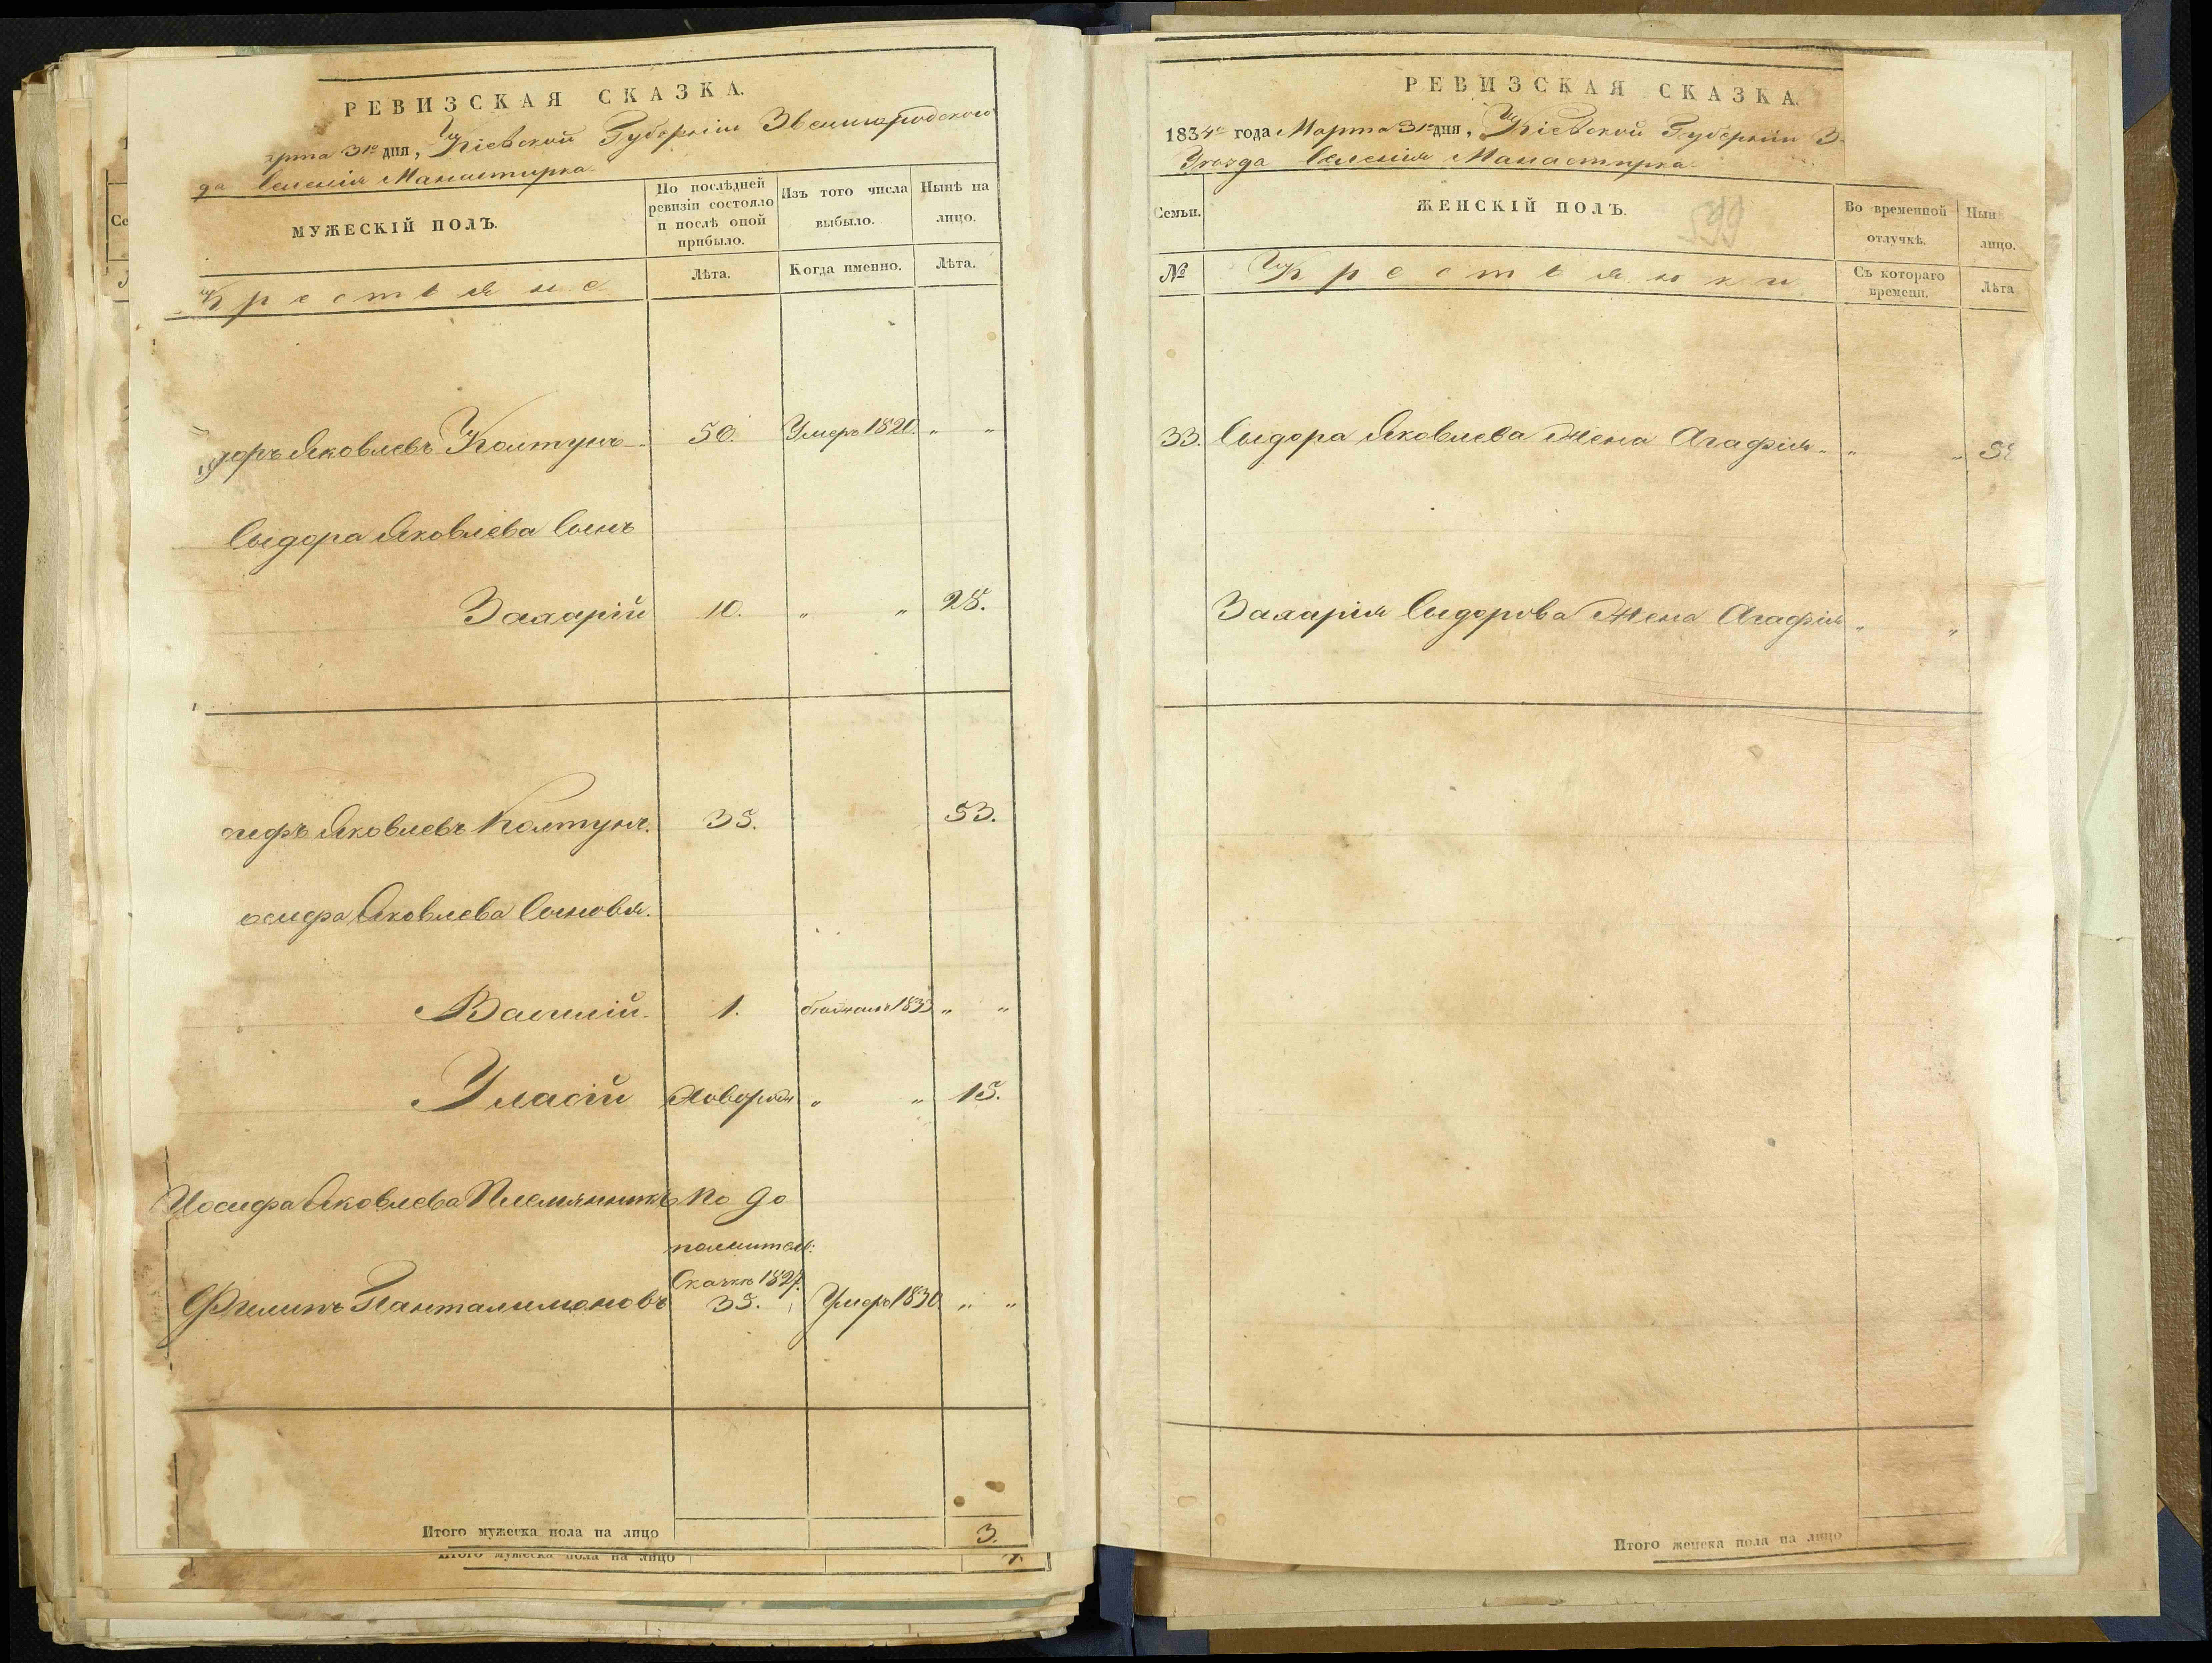 РЕВИЗСКАЯ СКАЗКА.
рта 31го дня, Кіевской Губерніи Звенигородского
да Селенія Манастирка
МУЖЕСКІЙ ПОЛЪ.
По послѣдней ревизіи состояло и послѣ оной прибыло.
Изъ того числа выбыло.
Нынѣ на лицо.
Крестьяне
Лѣта.
Когда именно.
Лѣта.
доръ Яковлевъ Колтунъ 50. Умеръ 1820. " "
Сыдора Яковлева Сынъ
Захарій 10. " " 28.
сифъ Яковлевъ Колтунъ. 35. 53.
осифа Яковлева Сыновья.
Василій. 1. 1833 " "
Уласій Новорож " " 15.
Иосифа Яковлева Племянникъ по до
полнител:
Сказкѣ 1827.
Филипъ Панталимоновъ 35. Умеръ 1830 " "
Итого мужеска пола на лицо 3.
Итого мужеска пола на лицо
РЕВИЗСКАЯ СКАЗКА.
1834го года Марта 31го дня, Кіевской Губерніи З
Уезда Селенія Манастирка
Семьи.
ЖЕНСКІЙ ПОЛЪ.
599
Во временной отлучкѣ.
Нын
лицо.
№
Крестьянки
Съ котораго времени.
Лѣта
33. Сыдора Яковлева Жена Агафія " " 5
Захарія Сыдорова Жена Агафія " "
Итого женска пола на лицо